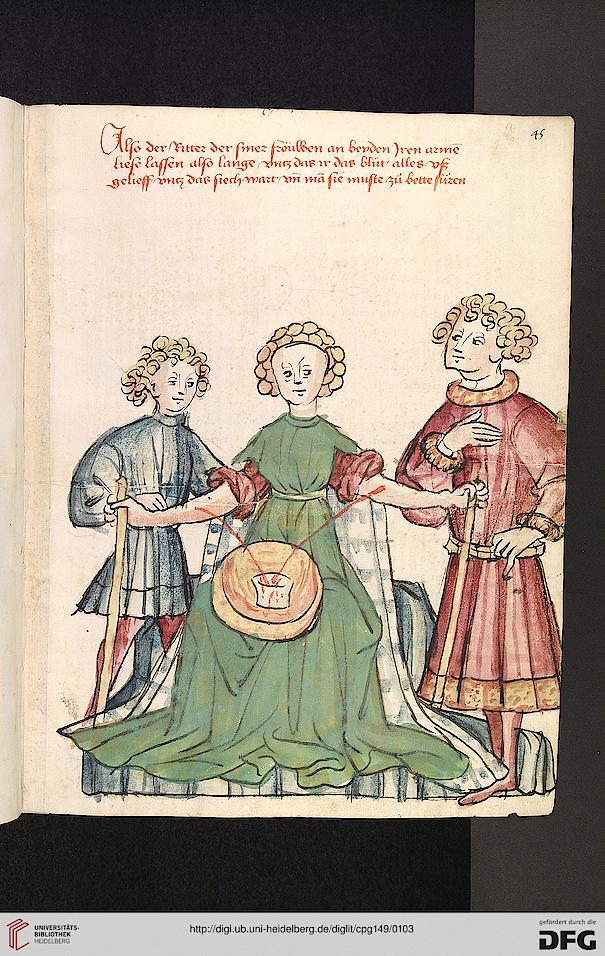 45
Also der Ritter der siner frouwen an beyden Iren arme
liess lassen also lange vntz das ir das blut alles vß
gelieff vntz das siech wart vn̄ mā sie muste zů bette füren
UNIVERSITÄTS-
BIBLIOTHEK
HEIDELBERG
http://digi.ub.uni-heidelberg.de/diglit/cpg149/0103
gefördert durch die
DFG